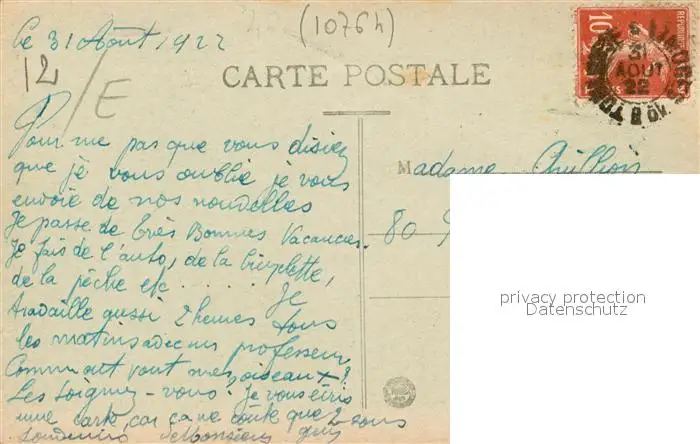 Le 31 Août 1922
(1076h)
12
E
CARTE POSTALE
Pour me pas que vous disiez
que je vous oublie je vous
envoie de nos nouvelles
Je passe de très Bonnes Vacances.
Je fais de l'auto, de la bicyclette,
de la pêche etc...... Je
travaille aussi 2 heures tous
les matins avec un professeur
Comment vont mes oiseaux?
Les soignez-vous? Je vous écris
une carte, car ça ne coûte que 2 sous
souvenirs de Monsieur
Madame
80
10
LIMOGES
31
AOUT
22
privacy protection
Datenschutz